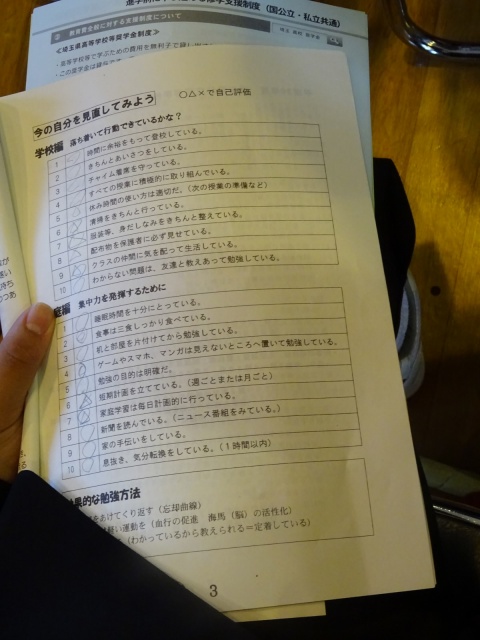 進学前に申し込める修学支援制度（国公立・私立共通）
② 教育費全般に対する支援制度について
≪埼玉県高等学校等奨学金制度≫
埼玉 高校 奨学金
・高等学校等で学ぶための費用を無利子で貸し出
・この奨学金は貸与
今の自分を見直してみよう
○△×で自己評価
学校編 落ち着いて行動できているかな？
1 時間に余裕をもって登校している。
2 きちんとあいさつをしている。
3 チャイム着席を守っている。
4 すべての授業に積極的に取り組んでいる。
5 休み時間の使い方は適切だ。（次の授業の準備など）
6 清掃をきちんと行っている。
7 服装等、身だしなみをきちんと整えている。
8 配布物を保護者に必ず見せている。
9 クラスの仲間に気を配って生活している。
10 わからない問題は、友達と教えあって勉強している。
庭編 集中力を発揮するために
1 睡眠時間を十分にとっている。
2 食事は三食しっかり食べている。
3 机と部屋を片付けてから勉強している。
4 ゲームやスマホ、マンガは見えないところへ置いて勉強している。
5 勉強の目的は明確だ。
6 短期計画を立てている。（週ごとまたは月ごと）
7 家庭学習は毎日計画的に行っている。
8 新聞を読んでいる。（ニュース番組をみている。）
9 家の手伝いをしている。
10 息抜き、気分転換をしている。（１時間以内）
果的な勉強方法
をあけてくり返す（忘却曲線）
軽い運動を（血行の促進 海馬（脳）の活性化）
（わかっているから教えられる＝定着している）
3